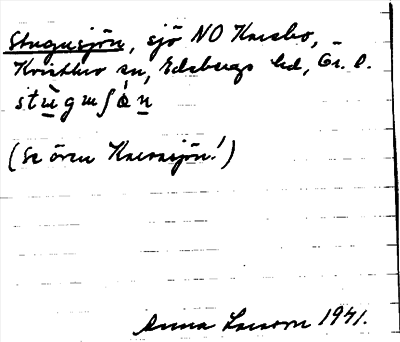 Stugusjön, sjö NO Knesbo,
Kvistbro sn, Edsbergs hd, Ör. l.
stùguʃö́n
(Se även Knesasjön!)
Anna Larsson 1941.